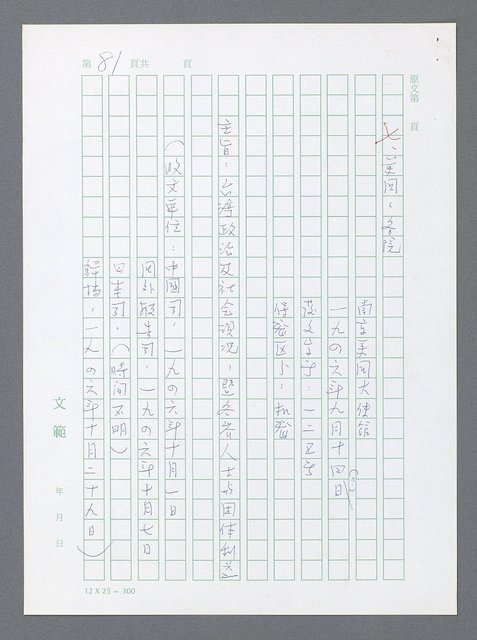 第 81 頁共　頁
原文第　頁
七、美国：务院
南京美国大使館
一九四六年九月十四日
發文字号：一二五号
保密区分：机密
主旨：台灣政治及社会現况，
（收文單位：中國司，一九四六年十月一日
国外報告司，一九四六年十月七日
日本司，（時间不明）
歸档，一九四六年十月二十九日）
文範
年　月　日
12 X 25 = 300